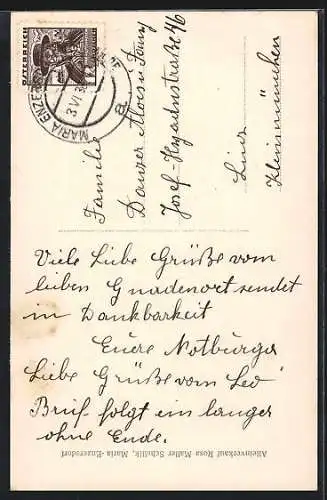 ÖSTERREICH
12
MARIA ENZE
3 VI 3
Familie
Danzer Alois u Fanny
Josef-Hyadnstraße 1/6
Linz
Kleinmünchen
Viele Liebe Grüße vom
lieben Gnadenort sendet
in Dankbarkeit
Euere Notburga
Liebe Grüße vom Leo
Brief folgt ein langer
ohne Ende.
Alleinverkauf Rosa Maller Schulik, Maria-Enzersdorf